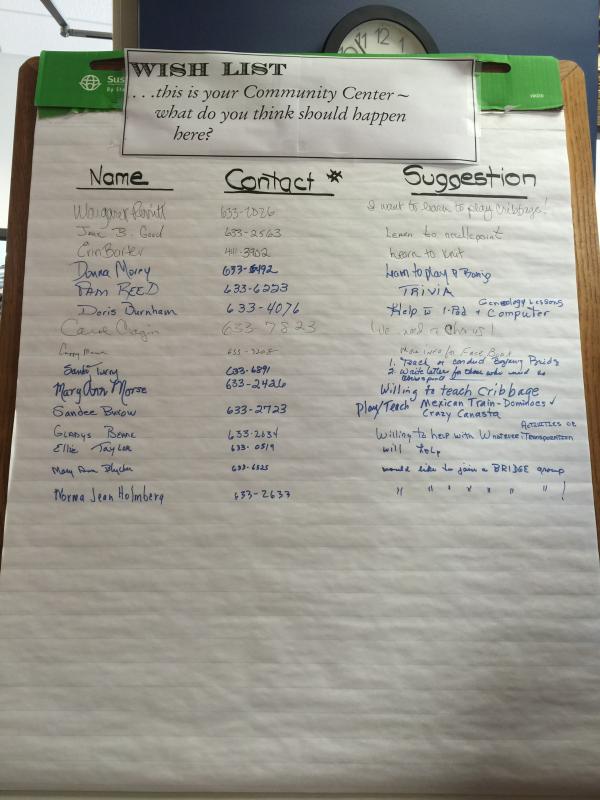 12 1
Sus
By Sta
WISH LIST
...this is your Community Center ~
what do you think should happen
here?
Name Contact * Suggestion
633-2026 I want to learn to play Cribbage!
Jane B. Good 633-2563 Learn to needlepoint
Erin Barter 411-3902 Learn to Knit
Donna Morey 633-5492 Learn to play
PAM REED 633-6223 TRIVIA
Genealogy Lessons
Doris Burnham 633-4076 Help w I-Pad + Computer
Carole 633-7823 We need a Chorus!
633-3208 More info for Face Book
633-6891 1. Teach or conduct Bridge
2. Write letter for those who need
MaryAnn Morse 633-2426 Willing to teach cribbage
Sandee Burow 633-2723 Play/Teach Mexican Train-Dominoes +
Crazy Canasta
Activities or
Gladys 633-2634 Willing to help with Whatever Transportation
Ellie Taylor 633-0519 will help
Mary Ann 633-6525 would like to join a BRIDGE group
Norma Jean Holmberg 633-2633 " " " " " " !